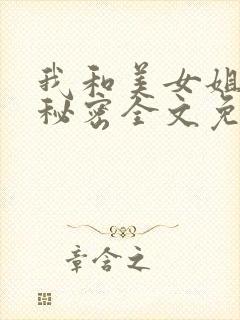 我和美女姐
秘密全文免
章含之